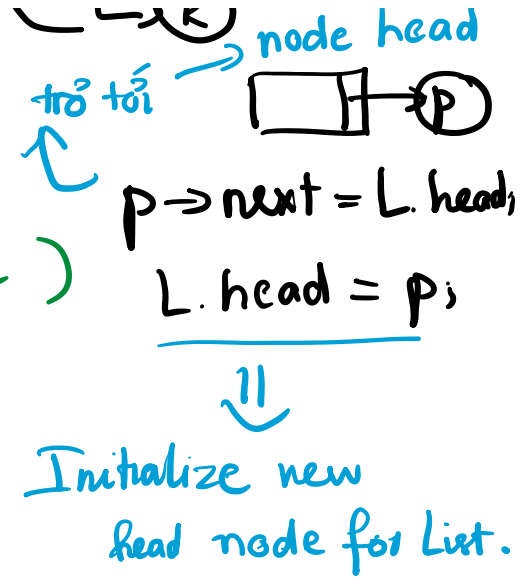 k
node head
trỏ tới
p
p→next = L.head;
L.head = p;
Initialize new
head node for List.